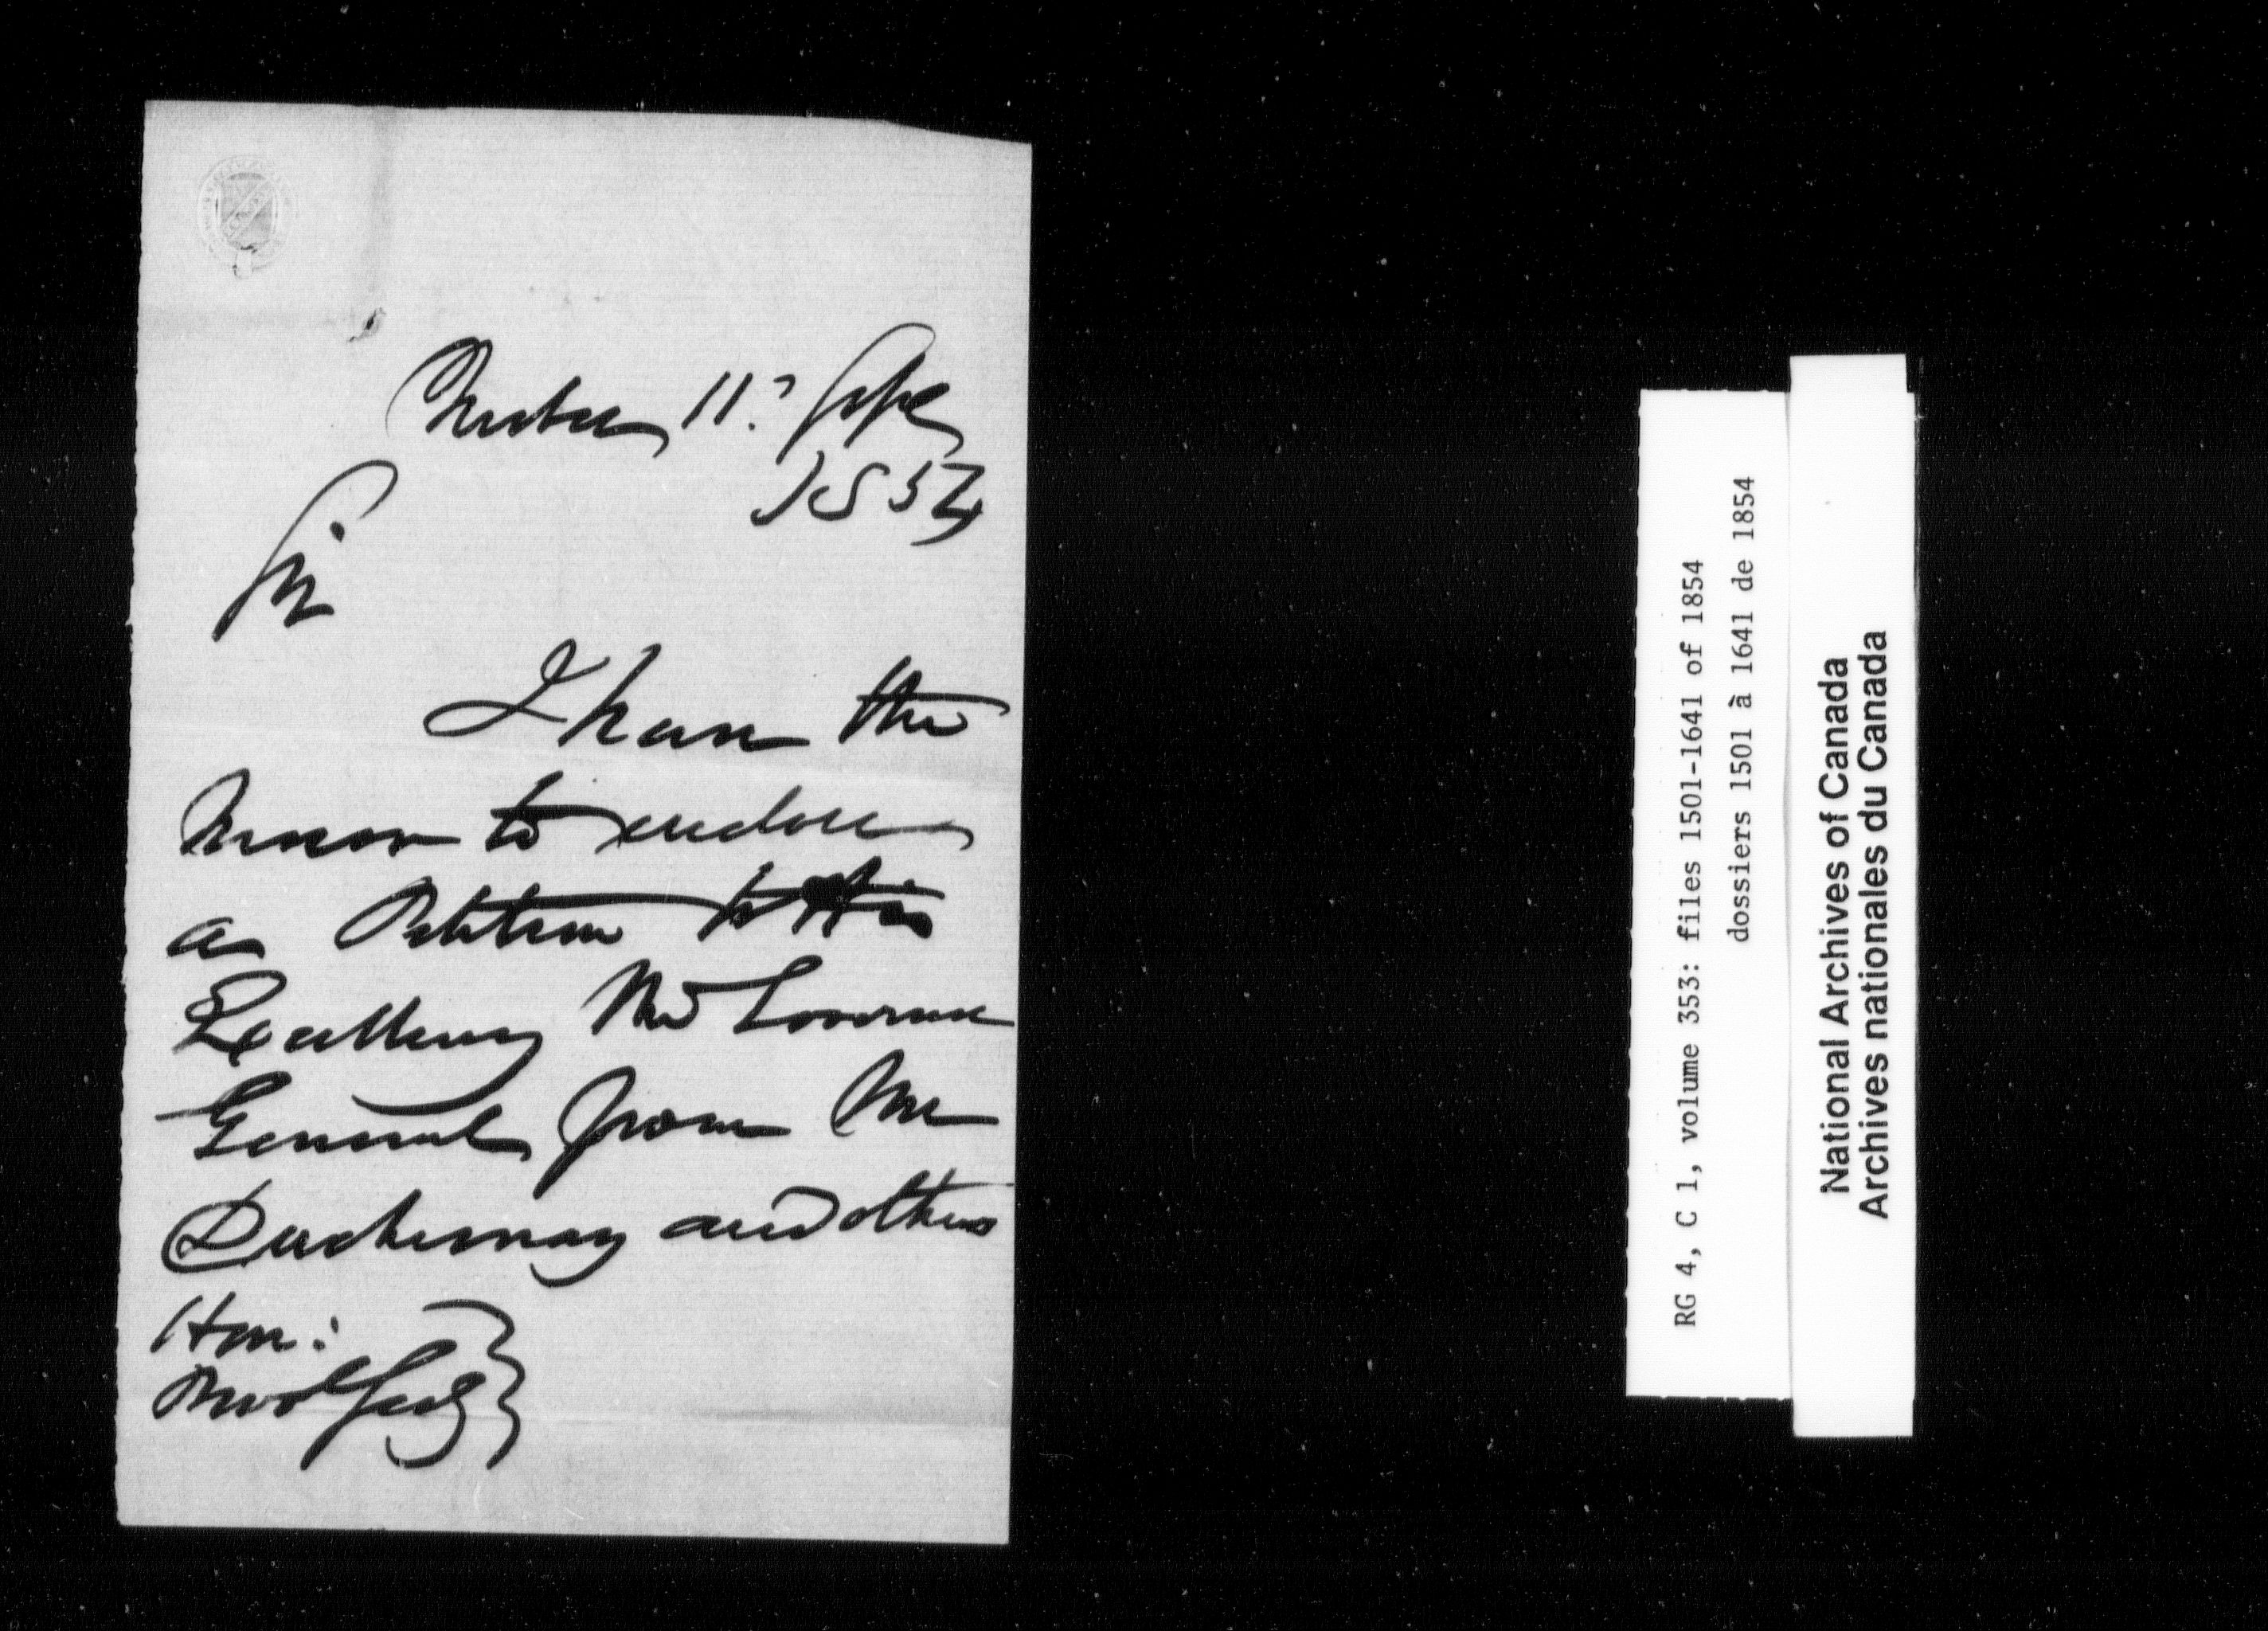 Quebec 11th Sepr
1854
Sir
I have the
honor to enclose
a Petition to His
Excellency the Governor
General from Mr
Duchesnay and others
Hon:
Provl Secy
RG 4, C 1, volume 353: files 1501-1641 of 1854
dossiers 1501 à 1641 de 1854
National Archives of Canada
Archives nationales du Canada